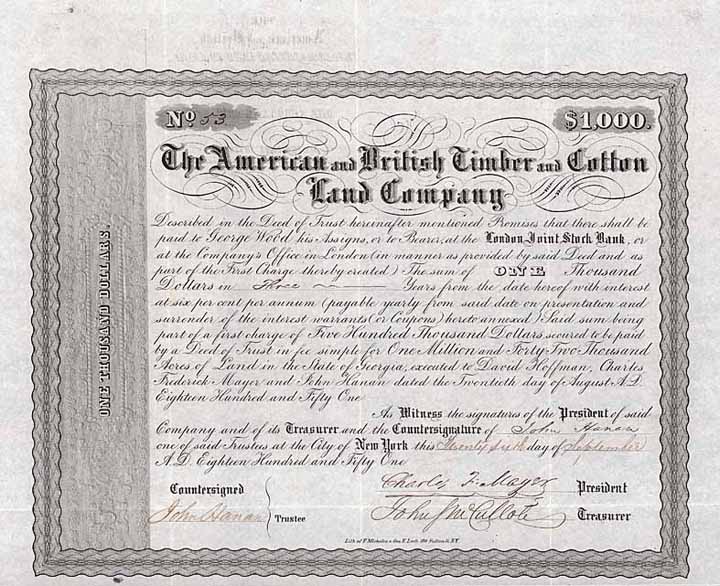 No 53
$1,000.
The American and British Timber and Cotton
Land Company
Described in the Deed of Trust hereinafter mentioned Promises that there shall be
paid to George Wood his Assigns, or to Bearer, at the London Joint Stock Bank, or
at the Company's Office in London (in manner as provided by said Deed and as
part of the First Charge thereby created) The sum of ONE Thousand
Dollars in Three Years from the date hereof with interest
at six per cent per annum (payable yearly from said date on presentation and
surrender of the interest warrants (or Coupons) hereto annexed) Said sum being
part of a first charge of Five Hundred Thousand Dollars, secured to be paid
by a Deed of Trust in fee simple for One Million and Forty Two Thousand
Acres of Land in the State of Georgia, executed to David Hoffman, Charles
Frederick Mayer and John Hanan dated the Twentieth day of August A.D.
Eighteen Hundred and Fifty One
As Witness the signatures of the President of said
Company and of its Treasurer and the Countersignature of John Hanan
one of said Trustees at the City of New York this Twenty sixth day of September
A.D. Eighteen Hundred and Fifty One
Countersigned
John Hanan
Trustee
Charles F. Mayer President
Treasurer
ONE THOUSAND DOLLARS.